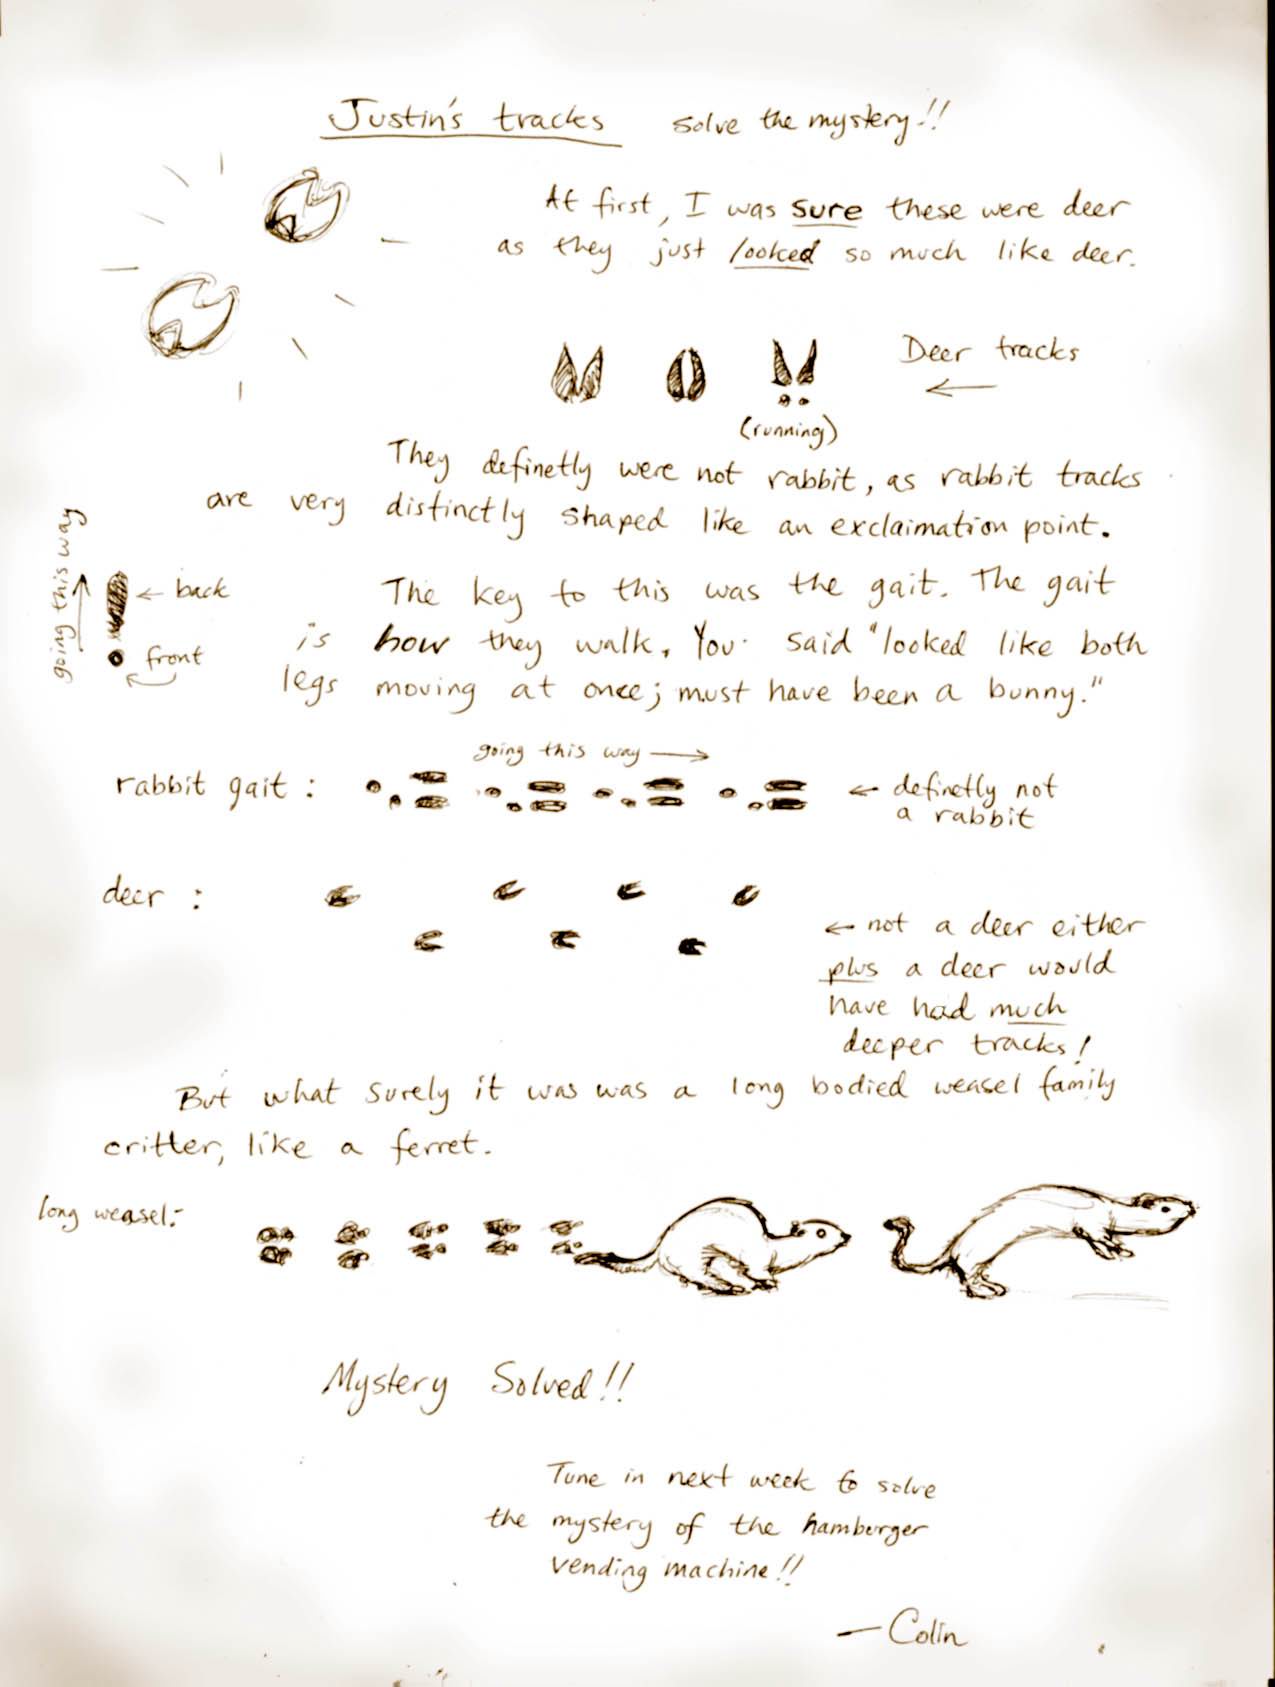 Justin's tracks solve the mystery!!
At first, I was sure these were deer
as they just looked so much like deer.
Deer tracks
(running)
They definetly were not rabbit, as rabbit tracks
are very distinctly shaped like an exclaimation point.
going this way
back
front
The key to this was the gait. The gait
is how they walk. You said "looked like both
legs moving at once; must have been a bunny."
going this way
rabbit gait:
definetly not
a rabbit
deer:
not a deer either
plus a deer would
have had much
deeper tracks!
But what surely it was was a long bodied weasel family
critter, like a ferret.
long weasel:-
Mystery Solved!!
Tune in next week to solve
the mystery of the hamburger
vending machine!!
— Colin